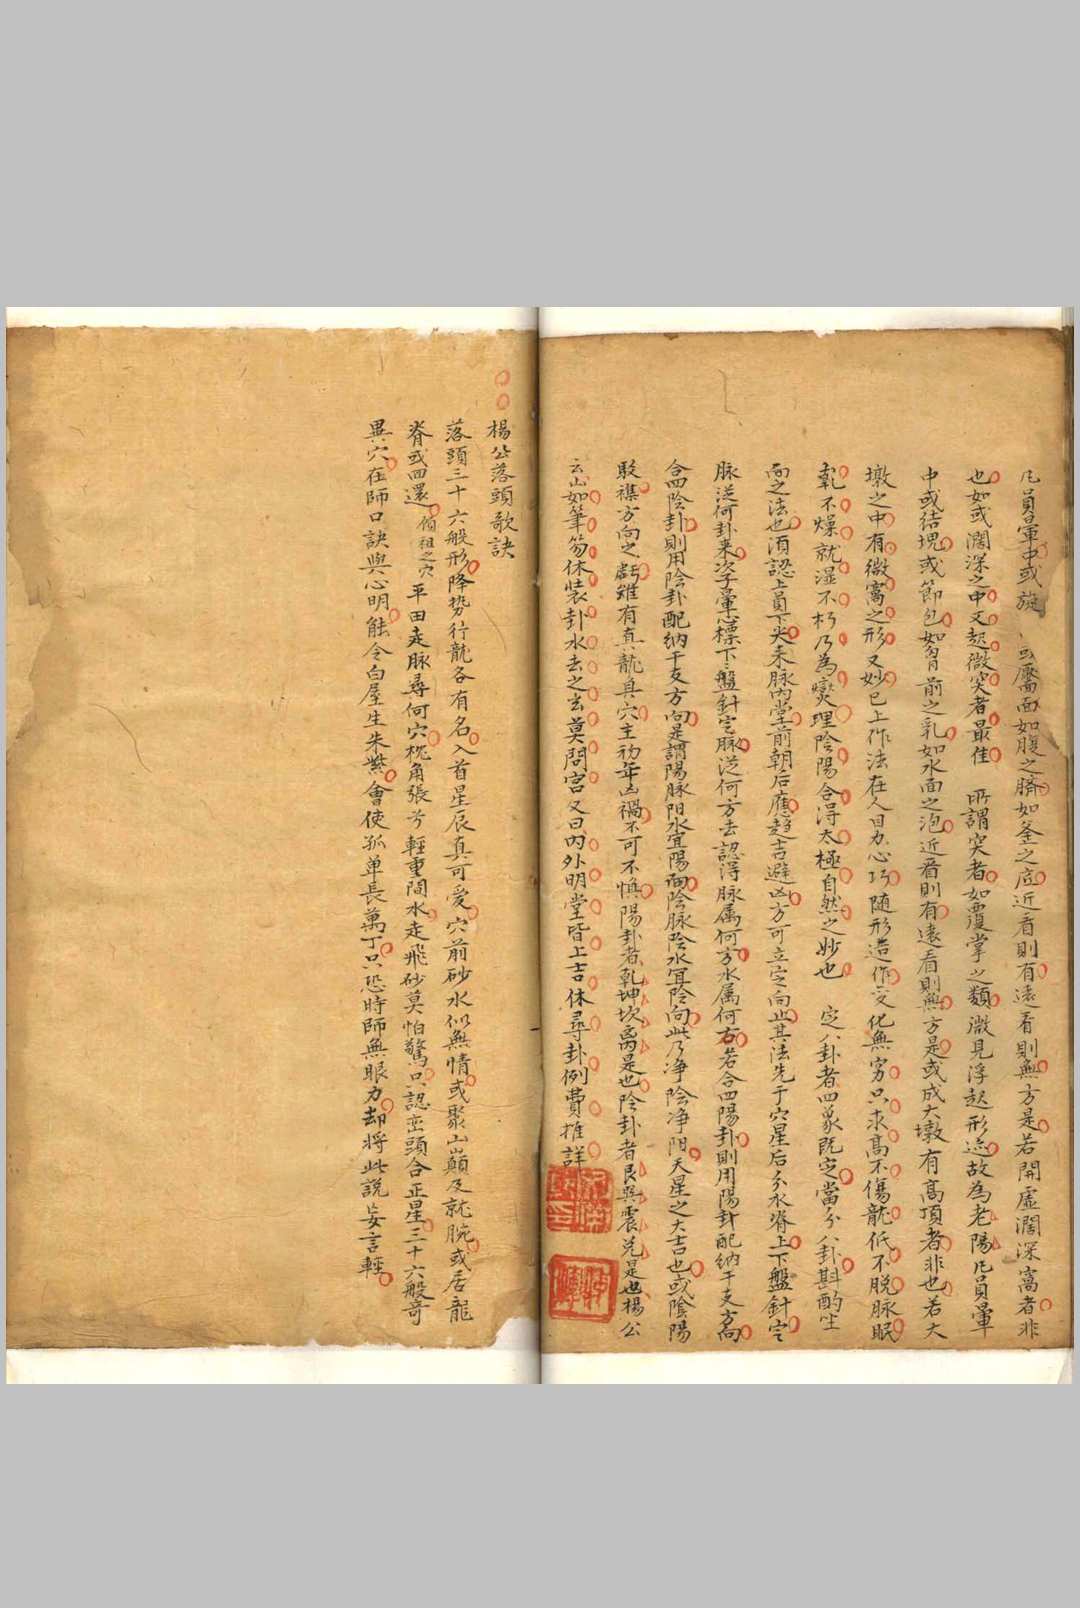 凡員暈中或旋 靨面如腹之臍如釜之底近看則有遠看則無方是若開虛濶深窩者非
也如或濶深之中又起微突者最佳 所謂突者如覆掌之類微見浮起形迹故為老陽凡員暈
中或結塊或節包如胷前之乳如水面之泡近看則有遠看則無方是或成大墩有高頂者非也若大
墩之中有微窩之形又妙已上作法在人目力心巧随形造作变化無穷只求高不傷龍低不脱脉眠
乾不燥就湿不朽乃為燮理陰陽合得太極自然之妙也 定八卦者四象既定當分八卦斟酌坐
向之法也須認上員下尖来脉内堂前朝后應趋吉避凶方可立定向止其法先于穴星后分水脊上下盤針定
脉送何卦来次于暈心標下盤針定脉送何方去認得脉属何方水属何方若合四陽卦則用陽卦配納干支方向
合四陰卦則用陰卦配納干支方向是謂陽脉阳水宜陽向陰脉陰水宜陰向此乃净陰净阳天星之大吉也或陰陽
駁襍方向之虧雖有真龍真穴主初年凶禍不可不慎陽卦者乾坤坎离是也陰卦者艮巽震兑是也楊公
云山如筆笏休装卦水去之玄莫問宮又曰内外明堂皆上吉休尋卦例費推詳
楊公落頭歌訣
落頭三十六般形降势行龍各有名入首星辰真可爱穴前砂水似無情或聚山顛及就腕或居龍
脊或回還 傾祖之穴 平田走脉尋何穴枕角張兮輕重間水走飛砂莫怕驚只認峦頭合正星三十六般竒
異穴在師口訣與心明能令白屋生朱紫會使孤单長萬丁只恐時師無眼力却將此說妄言輕